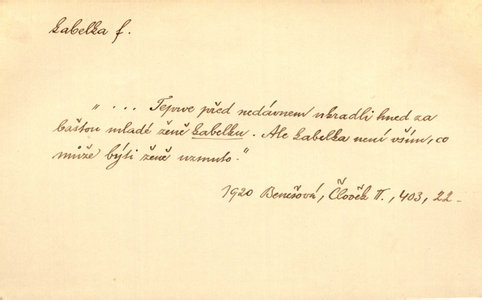 kabelka f.
„ ... Teprve před nedávnem ukradli hned za
baštou mladé ženě kabelku. Ale kabelka není vším, co
může býti ženě uzmuto.“
1920 Benešová, Člověk II., 403, 22 -